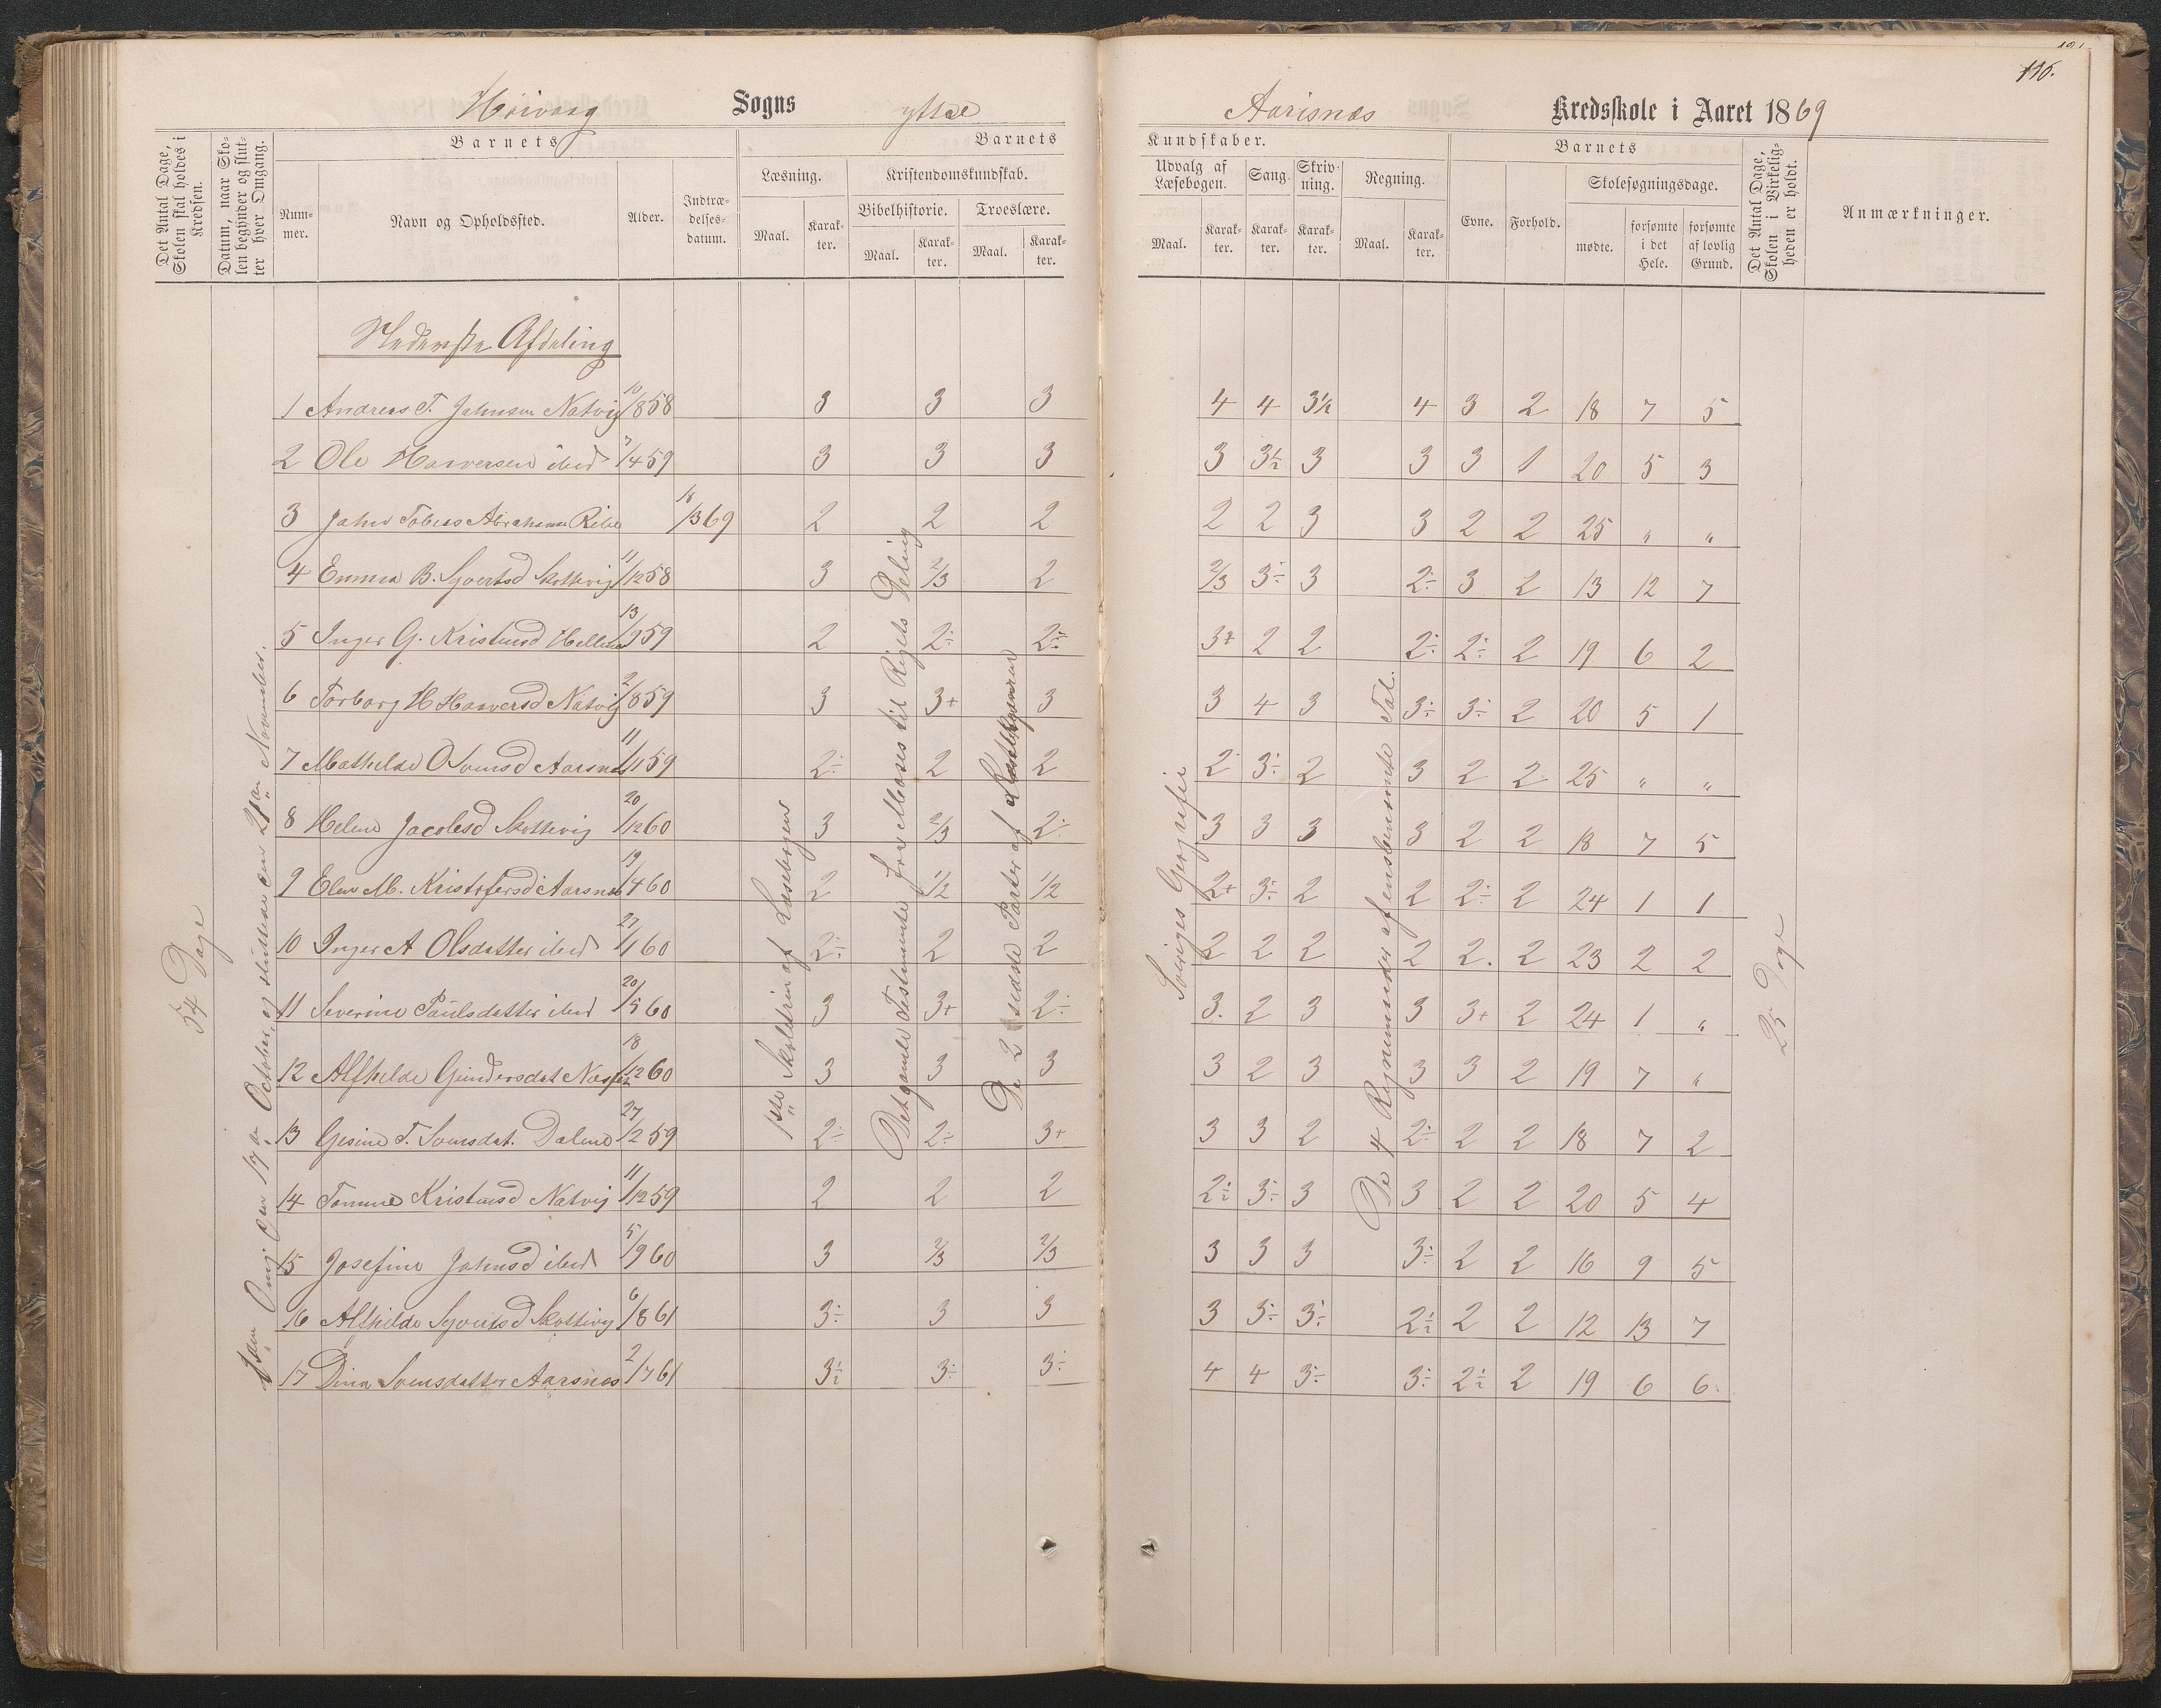 116.
Høivaag Sogns ytse Aarisnæs Kredsskole i Aaret 1869
Det Antal Dage, Skolen skal holdes i Kredsen.
Datum, naar Skolen begynder og slutter hver Omgang.
Barnets
Num-mer.
Navn og Opholdssted.
Alder.
Indtræ-delses-datum.
Barnets Kundskaber.
Læsning.
Maal.
Karak-ter.
Kristendomskundskab.
Bibelhistorie.
Maal.
Karak-ter.
Troeslære.
Maal.
Karak-ter.
Udvalg af Læsebogen.
Maal.
Karak-ter.
Sang.
Karak-ter.
Skriv-ning.
Karak-ter.
Regning.
Maal.
Karak-ter.
Barnets
Evne.
Forhold.
Skolesøgningsdage.
mødte.
forsømte i det Hele.
forsømte af lovlig Grund.
Det Antal Dage, Skolen i Virkelig-heden er holdt.
Anmærkninger.
54 Dage
Omg den 17de October, og sluttede den 21de November.
Nederste Afdeling
1ste Skoletrin af Læsebogen
Det gamle Testamente fra Moses til Rigets Deling
De 2 sidste Parter af
Sveriges Geografie
De 4 Regnemaader af ensbenævnte Tal.
25 Dage
1 Andreas T. Johnsen Natvig 10/8 58 3 3 3 4 4 3½ 4 3 2 18 7 5
2 Ole Haversen ibid 3/4 59 3 3 3 3 3½ 3 3 3 1 20 5 3
3 John Tobias Abrahams Ribe 18/3 69 2 2 2 2 2 3 3 2 2 25 " "
4 Emma B. Syvertsd Skottevig 11/12 58 3 2/3 2 2/3 3÷ 3 2÷ 3 2 13 12 7
5 Inger G. Kristensd Hellene 13/9 59 2 2÷ 2÷ 3+ 2 2 2÷ 2÷ 2 19 6 2
6 Torborg H Haversd Natvig 2/8 59 3 3+ 3 3 4 3 3÷ 3÷ 2 20 5 1
7 Mathilde O Svensd Aarsnæs 11/11 59 2÷ 2 2 2÷ 3÷ 2 3 2 2 25 " "
8 Helene Jacobsd Skottevig 20/12 60 3 2/3 2÷ 3 3 3 3 2 2 18 7 5
9 Elen M. Kristofersd Aarsnæs 19/4 60 2 1/2 1/2 2+ 3÷ 2 2 2÷ 2 24 1 1
10 Inger A Olsdatter ibid 22/1 60 2÷ 2 2 2 2 2 2 2. 2 23 2 2
11 Severine Paulsdatter ibid 20/5 60 3 3+ 2÷ 3. 2 3 3 3+ 2 24 1 "
12 Alfhilde Gundersdat 18/12 60 3 3 3 3 2 3 3 3 2 19 7 "
13 Gesine T. Svensdat. Dalene 27/12 59 2÷ 2÷ 3+ 3 3 2 2÷ 2 2 18 7 2
14 Tomine Kristensd Natvig 11/12 59 2 2 2 2½ 3÷ 3 3 2 2 20 5 4
15 Josefine Johnsd ibid 5/9 60 3 2/3 2/3 3 3 3 3÷ 2 2 16 9 5
16 Alfhilde Syvertsd Skottevig 6/8 61 3÷ 3 3 3 3÷ 3÷ 2½ 2 2 12 13 7
17 Dina Svensdatter Aarsnæs 2/7 61 3½ 3÷ 3÷ 4 4 3÷ 3÷ 2½ 2 19 6 6